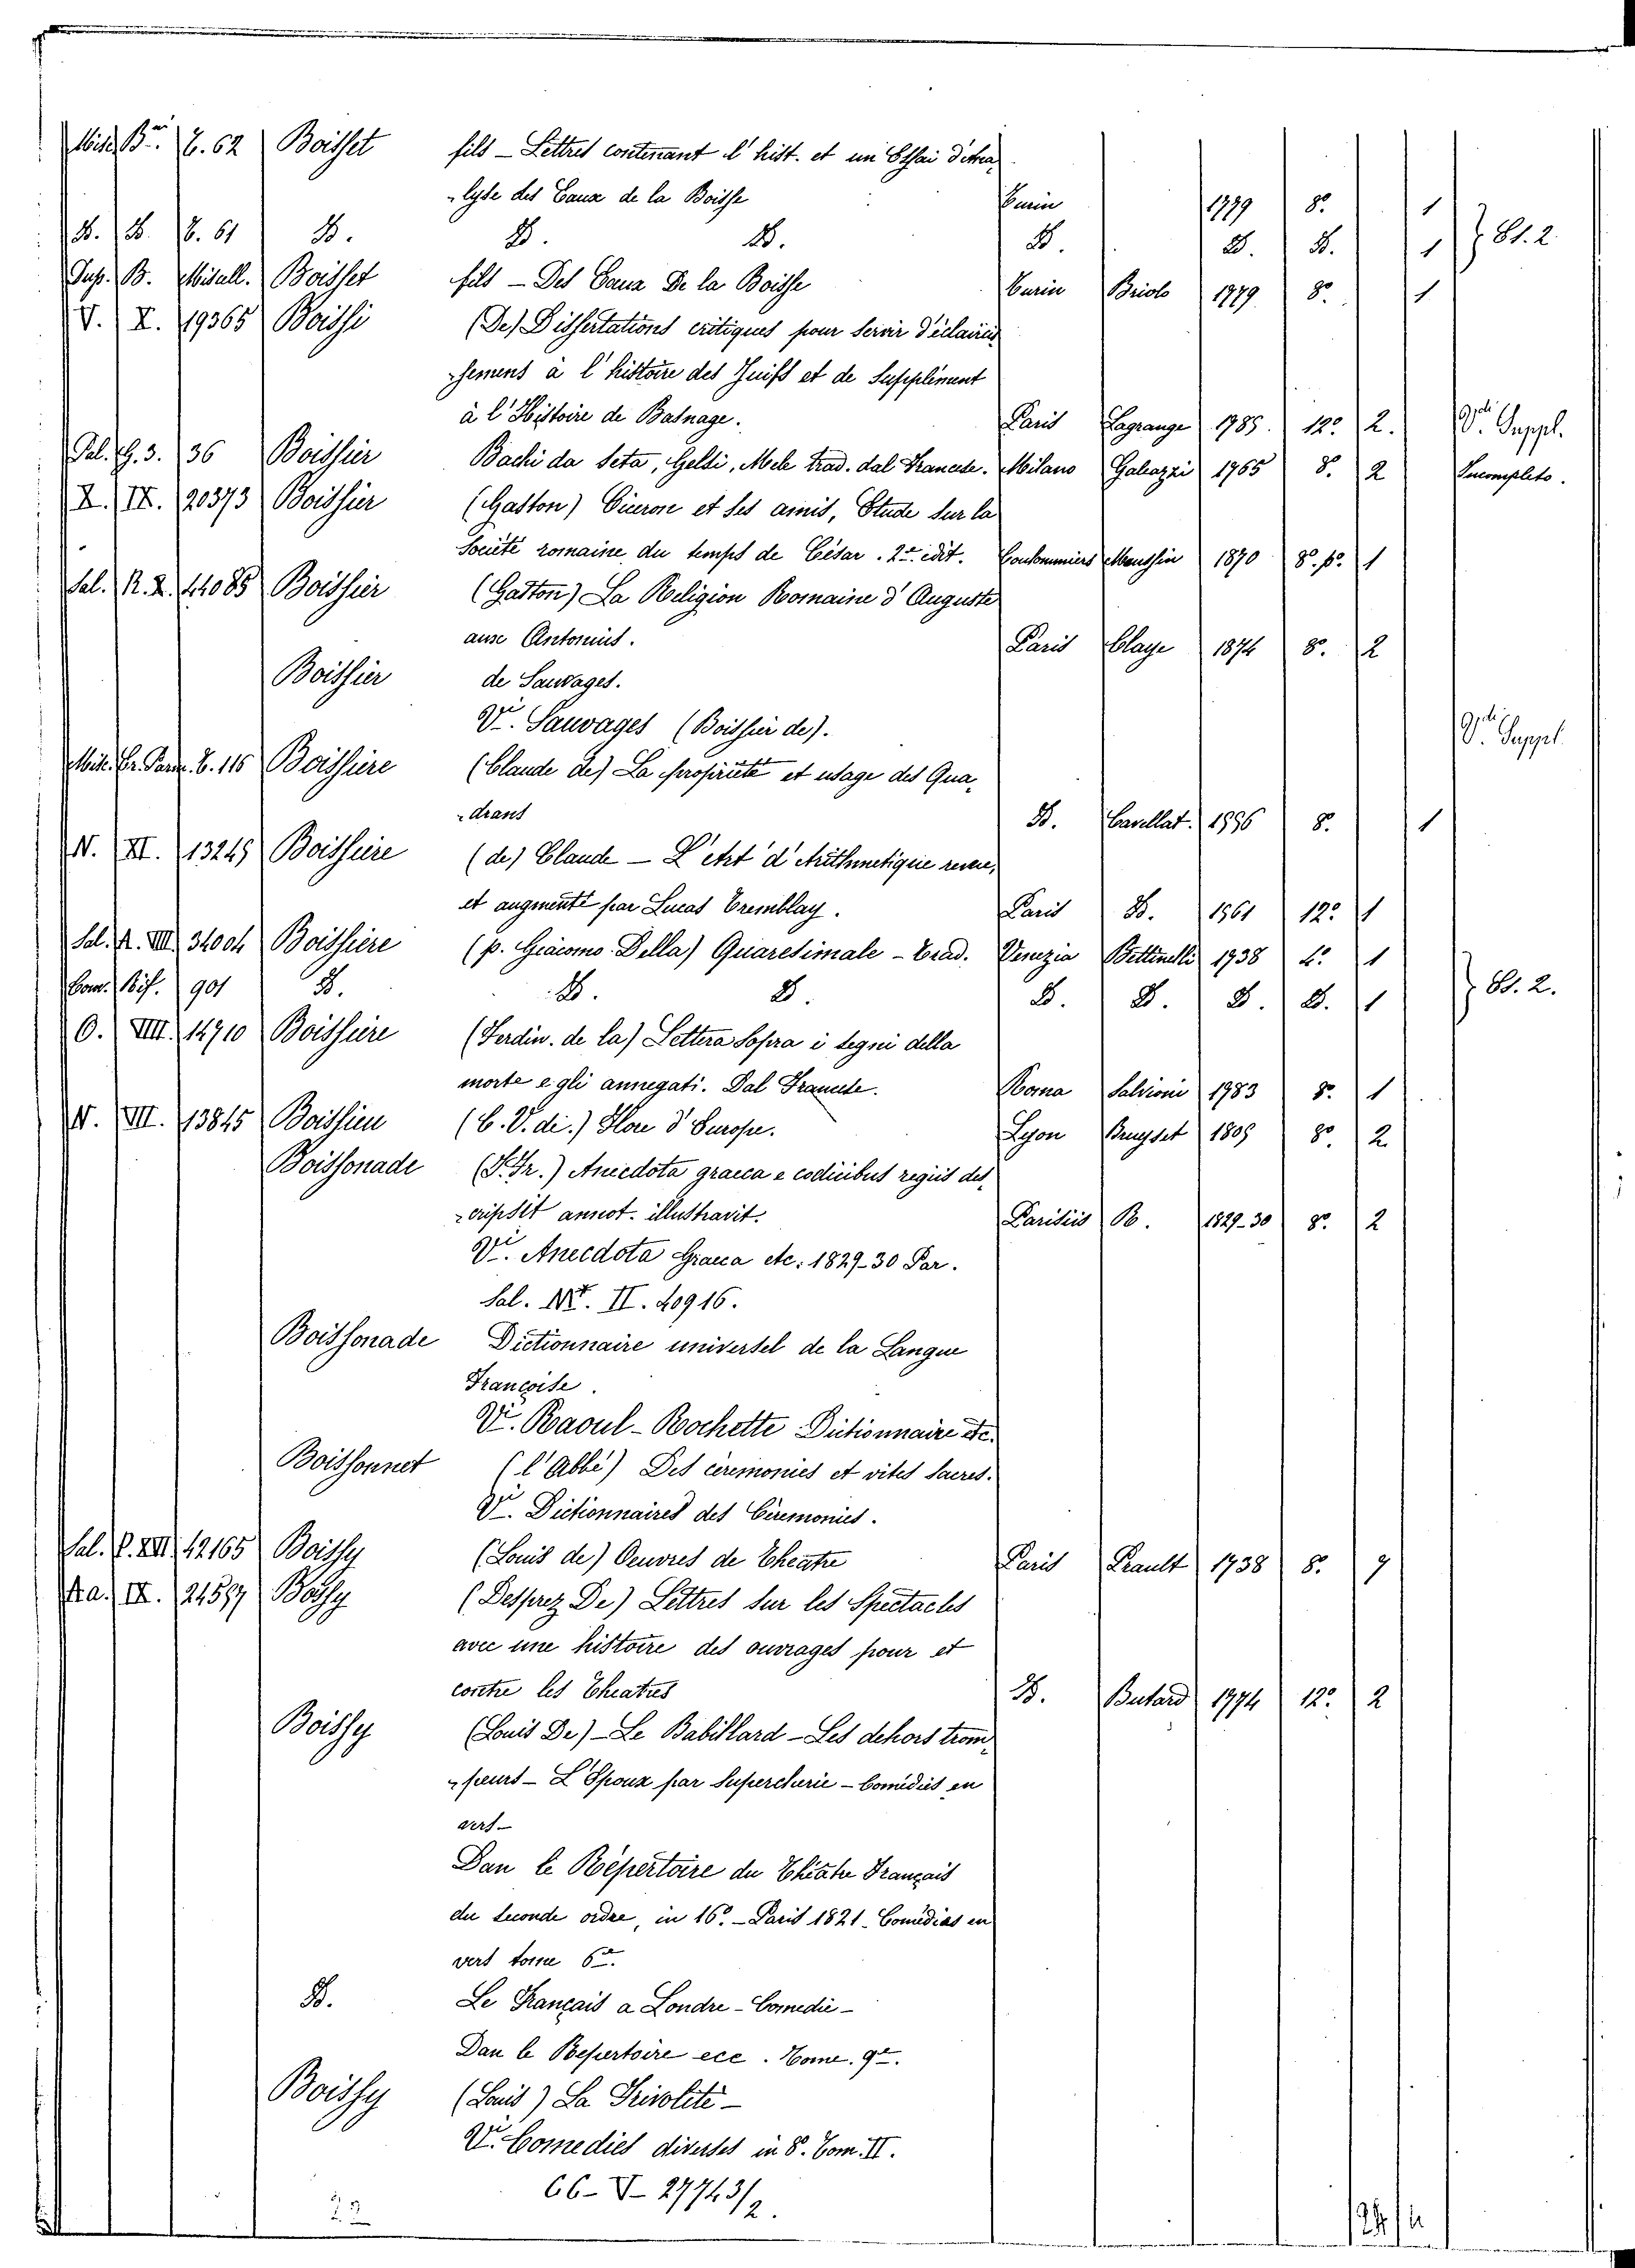 Misc. B.ni E. 62 Boisset fils - Lettres contenant l'hist. et un Essai d'Ana-
-lyse des Eaux de la Boisse Turin 1779 8º 1
D. D. E. 61 D. D. D. D. D. D. 1 } Es. 2.
Boisset fils - Des Eaux De la Boisse Turin Briolo 1779 8º 1
V. X. 19365 Boissi (De) Dissertations critiques pour servir d'éclaircis-
-semens a l'histoire des Juifs et de Supplément
à l'Histoire de Basnage. Paris Lagrange 1785. 12º 2. Vedi Suppl.
Pal. G. 3. 36 Boissier Bachi da Seta, Gelsi, Mele trad. dal Francese. Milano Galeazzi 1765 8. 2 Incompleto.
X. IX. 20373 Boissier (Gaston) Ciceron et ses amis, Etude sur la
Société romaine du temps de César. 2e. edit. Moussin 1870 8º. pº. 1
Sal. R. X. 44085 Boissier (Gaston) La Religion Romaine d'Auguste
aux Antonins. Paris Claye 1874 8º. 2
Boissier de Sauvages.
Vi. Sauvages (Boissier de). Vedi Suppl.
E. 116 Boissiere (Claude de) La proprieté et usage des Qua-
-drans D. Cavellat. 1556 8. 1
N. XI. 13245 Boissiere (de) Claude - L'Art d'Arithmetique reveu,
et augmenté par Lucas Tremblay. Paris D. 1561 12º 1
Sal. A. VIII. 34004 Boissiere (p. Giacomo Della) Quaresimale - Trad. Venezia Bettinelli 1738 4º 1
901 D. D. D. D. D. D. D. 1 } Es. 2.
O. VIII. 14710 Boissiere (Ferdin. de la) Lettera sopra i segni della
morte e gli annegati. Dal Francese. Roma Salvioni 1783 8º 1
N. VII. 13845 Boissieu (C. V. di.) Flore d'Europe. Lyon Bruyset 1805 8º. 2
Boissonade (J. Fr.) Anecdota graeca e codicibus regiis des-
-cripsit annot. illustravit. Parisiis R. 1829-30 8º. 2
Vi. Anecdota Graeca etc: 1829-30 Par.
Sal. II. 40916.
Boissonade Dictionnaire universel de la Langue
Françoise.
Vi. Raoul-Rochette Dictionnaire etc.
Boissonnet (l'Abbé) Des cérémonies et rites sacrés.
Vi. Dictionnaires des Cérémonies.
Sal. P. XIII. 42165 Boissy (Louis de) Oeuvres de Theatre Paris Prault 1738 8º. 7
IX. 21597 Boissy (Desprez De) Lettres sur les Spectacles
avec une histoire des ouvrages pour et
contre les Theatres D. Butard 1774 12º. 2
Boissy (Louis De) - Le Babillard - Les dehors trom-
-peurs - L'Epoux par supercherie - Comédies en
vers -
Dan le Répertoire du Théatre Français
du seconde ordre, in 16º. - Paris 1821 - Comédias en
vers tome 6e.
D. Le Français a Londre - Comedie -
Dan le Repertoire ecc. Tome. 9e.
Boissy (Louis) La Frivolité -
Vi. Comedies diverses in 8º. Tom. II.
66 - V - 27743/2.
22